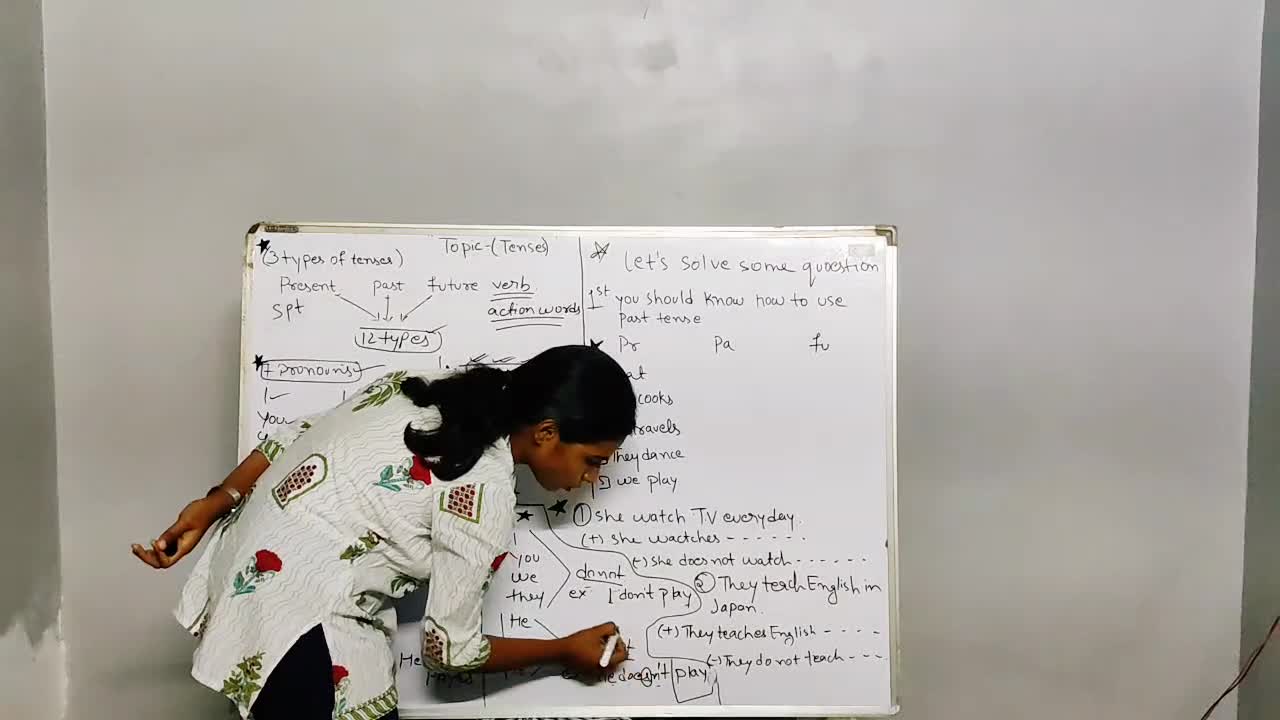 Topic-(Tenses)
(3 types of tenses)
Present past future verb
spt action words
12 types
7 pronouns
1.
I
You
I
you
we
they
do not
ex I don't play
He
He
plays
doesn't play
Let's solve some quoestion
1st you should know how to use
past tense
Pr Pa fu
cooks
travels
They dance
5] we play
① she watch T.V everyday.
(+) she wactches - - - - - -
(-) she does not watch - - - - - -
② They teach English in
Japan.
(+) They teaches English - - - -
(-) They do not teach - - -